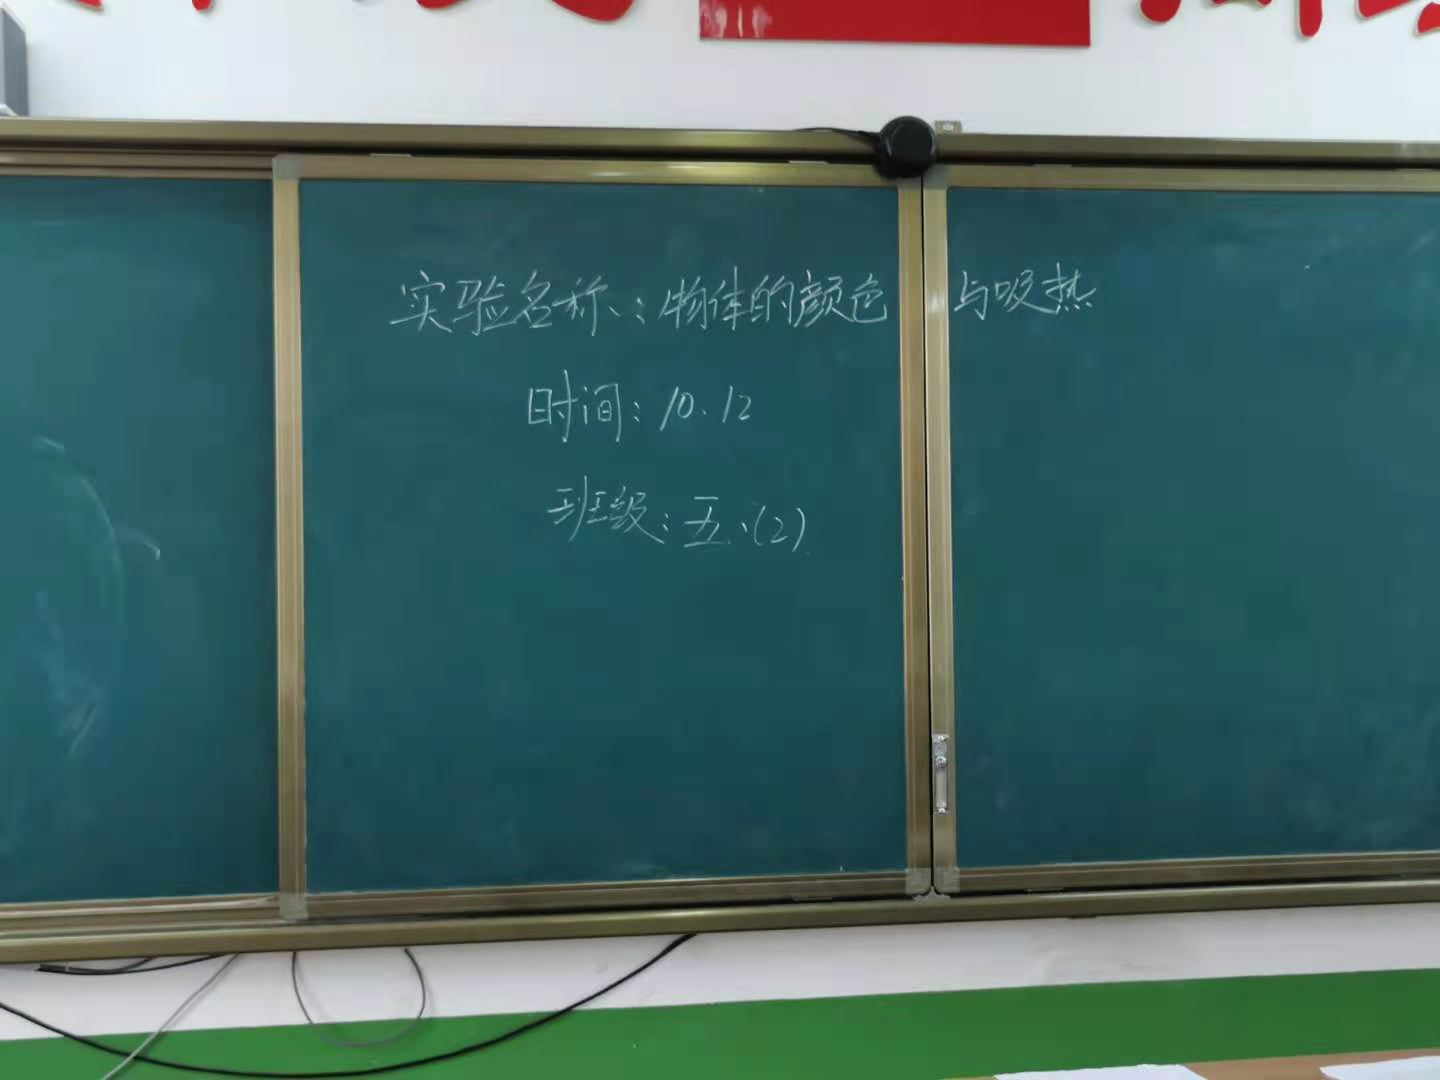 实验名称：物体的颜色与吸热
时间：10.12
班级：五、(2)